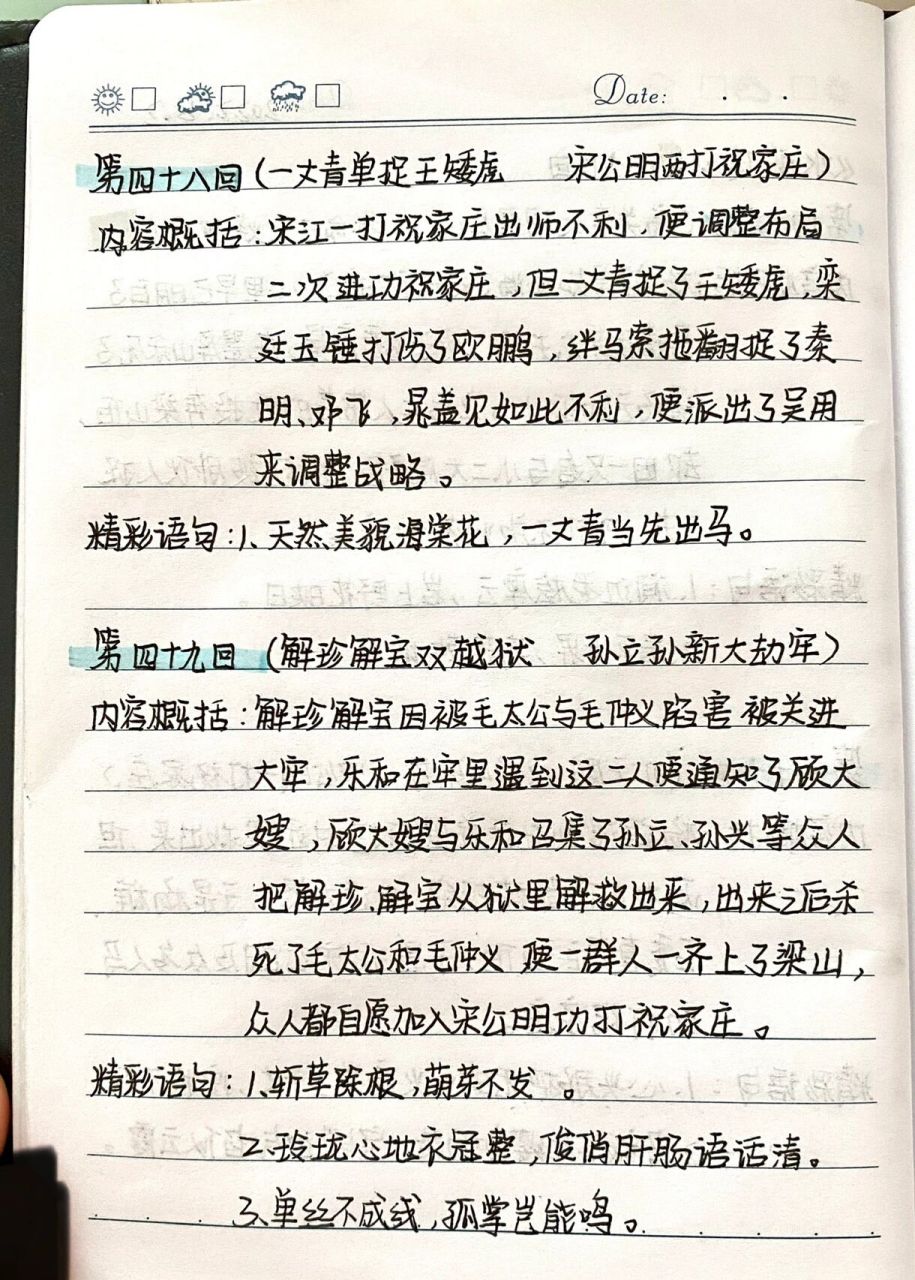 Date:
第四十八回(一丈青单捉王矮虎 宋公明两打祝家庄)
内容概括:宋江一打祝家庄出师不利,便调整布局
二次进功祝家庄,但一丈青捉了王矮虎,栾
廷玉锤打伤了欧鹏,绊马索拖翻捉了秦
明、邓飞,晁盖见如此不利,便派出了吴用
来调整战略。
精彩语句:1、天然美貌海棠花,一丈青当先出马。
第四十九回(解珍解宝双越狱 孙立孙新大劫牢)
内容概括:解珍解宝因被毛太公与毛仲义陷害被关进
大牢,乐和在牢里遇到这二人便通知了顾大
嫂,顾大嫂与乐和召集了孙立、孙兴等众人
把解珍、解宝从狱里解救出来,出来之后杀
死了毛太公和毛仲义 便一群人一齐上了梁山,
众人都自愿加入宋公明功打祝家庄。
精彩语句:1、斩草除根,萌芽不发。
2、玲珑心地衣冠整,俊俏肝肠语话清。
3、单丝不成线,孤掌岂能鸣。